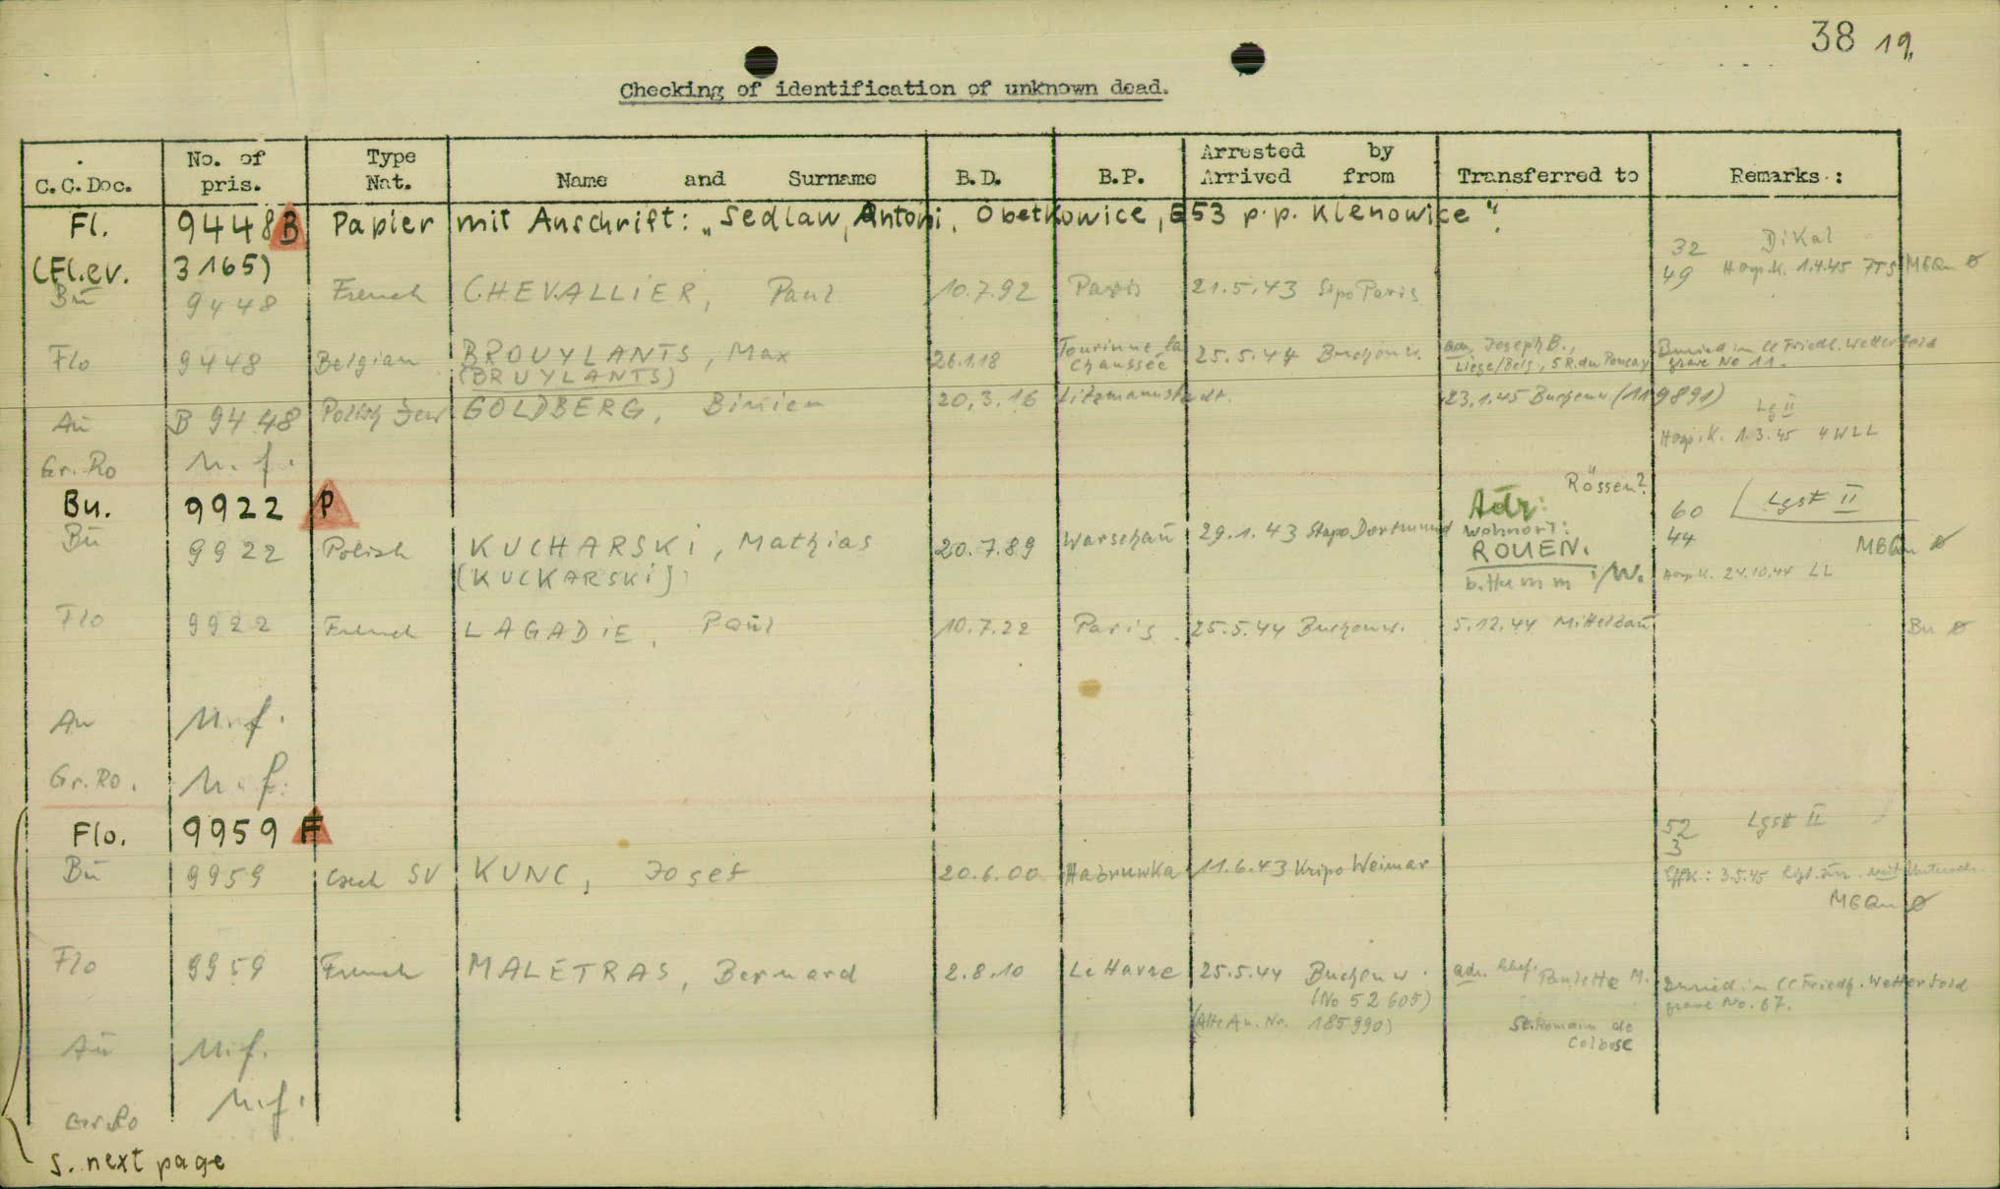 38 19.
Checking of identification of unknown dead.
C.C.Doc. No. of pris. Type Nat. Name and Surname B.D. B.P. Arrested by Arrived from Transferred to Remarks :
Fl. 9448 B Papier mit Anschrift: „Sedlaw, Antoni, Obetkowice, 653 p.p. Klenowice".
(Fl.ev. 3165)
32 DiKal
49 Hosp.K. 1.4.45 MGQu ø
Bu 9448 French CHEVALLIER, Paul 10.7.92 Paris 21.5.43 Sipo Paris
Flo 9448 Belgian BROUYLANTS, Max 26.1.18 Tourinne la Chaussée 25.5.44 Buchenw. Joseph B., Buried in CC Friedh. Wetterfeld
(BRUYLANTS) Liege/Belg, grave No 11.
Au B 9448 Polish Jew GOLDBERG, 20.3.16 Litzmannstadt. 23.1.45 Buchenw (119891) Lg II
Hosp.K. 1.3.45
Gr.Ro n.f.
Bu. 9922 P Rössen? 60 Lgst II
Adr: 44
Bu 9922 Polish KUCHARSKI, Mathias 20.7.89 Warschau 29.1.43 Stapo Dortmund Wohnort: MGQu ø
(KUCKARSKI) ROUEN.
b. Hamm i/W. Hosp.K. 24.10.44 LL
Flo 9922 French LAGADIE, Paul 10.7.22 Paris 25.5.44 Buchenw. 5.12.44 Mittelbau Bu ø
Au n.f.
Gr.Ro. n.f.
Flo. 9959 F 52 Lgst II
3
Bu 9959 Czech SV KUNC, Josef 20.6.00 Habruwka 11.6.43 Kripo Weimar Effk.: 3.5.45
MGQu ø
Flo 9959 French MALETRAS, Bernard 2.8.10 Le Havre 25.5.44 Buchenw. adr. Paulette M. Buried in CC Friedh. Wetterfeld
(No 52605) grave No. 67.
(Alte Au. Nr. 185990) St.Romain de
Colbosc
Au n.f.
Gr.Ro n.f.
s. next page